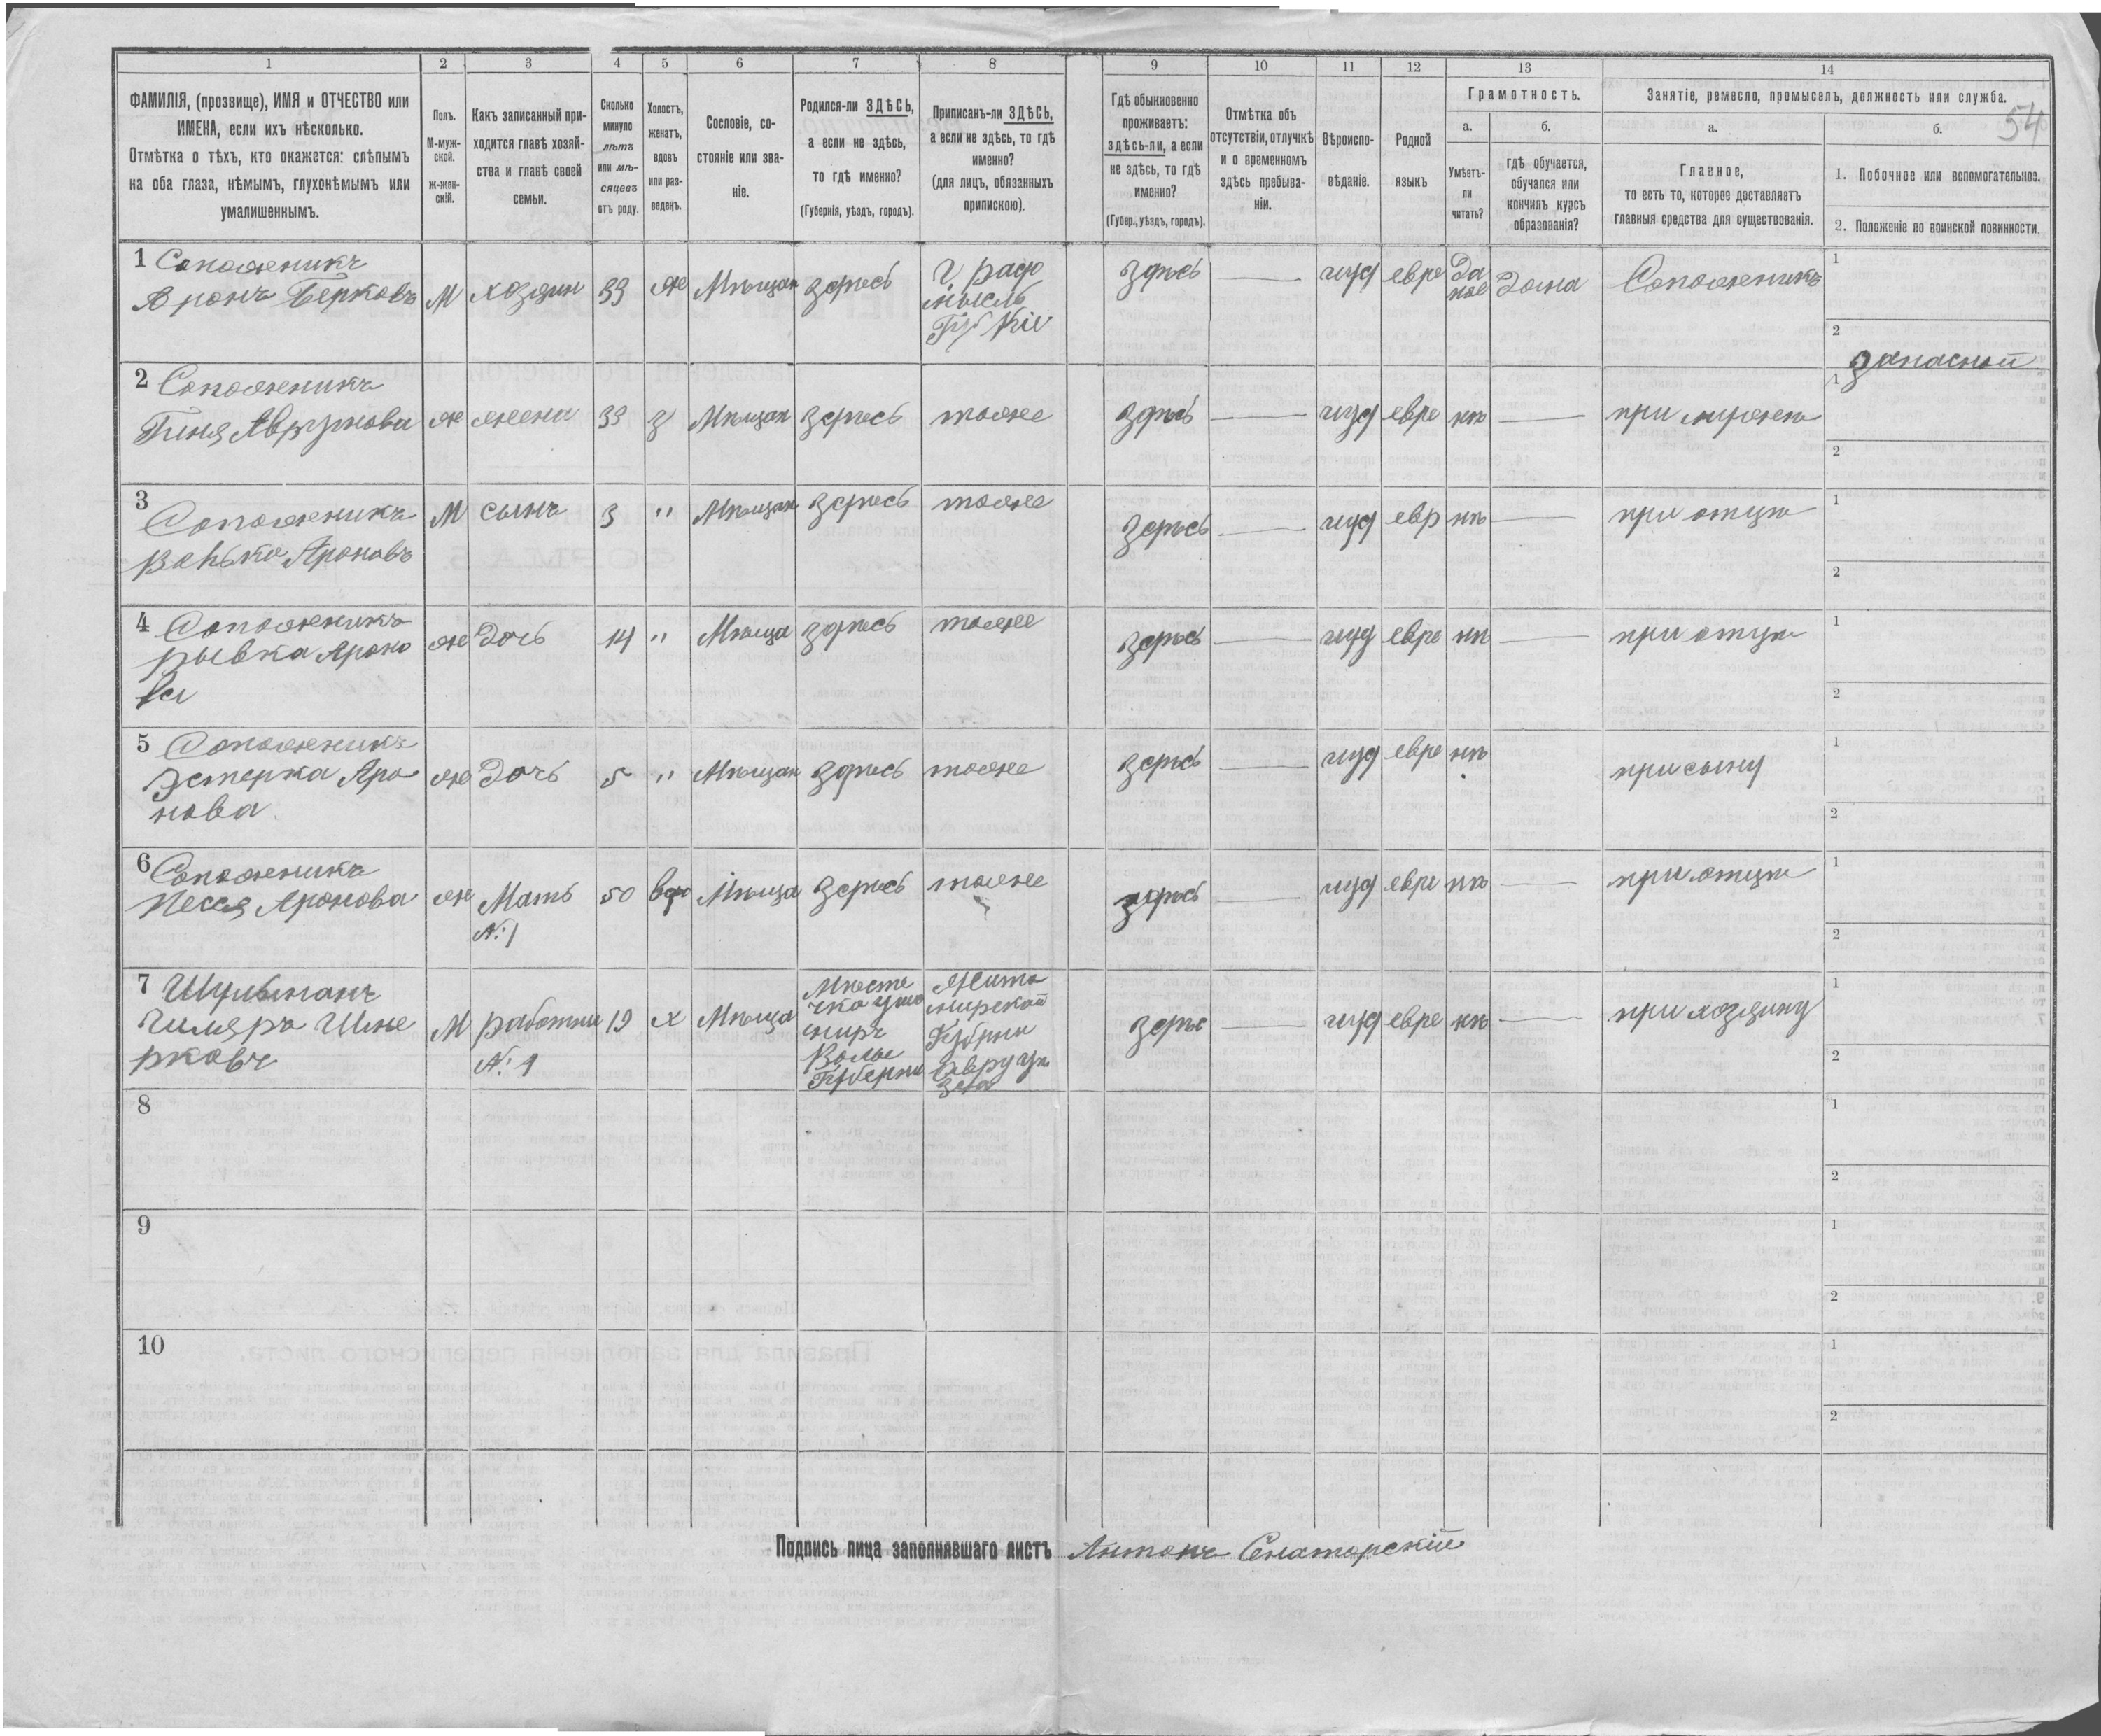 1 2 3 4 5 6 7 8 9 10 11 12 13 14
ФАМИЛІЯ, (прозвище), ИМЯ и ОТЧЕСТВО или
ИМЕНА, если ихъ нѣсколько.
Отмѣтка о тѣхъ, кто окажется: слѣпымъ
на оба глаза, нѣмымъ, глухонѣмымъ или
умалишеннымъ.
Полъ.
М-муж-
ской.
ж-жен-
скій.
Какъ записанный при-
ходится главѣ хозяй-
ства и главѣ своей
семьи.
Сколько
минуло
лѣтъ
или мѣ-
сяцевъ
отъ роду.
Холостъ,
женатъ,
вдовъ
или раз-
веденъ.
Сословіе, со-
стояніе или зва-
ніе.
Родился-ли ЗДѢСЬ,
а если не здѣсь,
то гдѣ именно?
(Губернія, уѣздъ, городъ).
Приписанъ-ли ЗДѢСЬ,
а если не здѣсь, то гдѣ
именно?
(для лицъ, обязанныхъ
припискою).
Гдѣ обыкновенно
проживаетъ:
здѣсь-ли, а если
не здѣсь, то гдѣ
именно?
(Губер., уѣздъ, городъ).
Отмѣтка объ
отсутствіи, отлучкѣ
и о временномъ
здѣсь пребыва-
ніи.
Вѣроиспо-
вѣданіе.
Родной
языкъ
Грамотность.
а.
Умѣетъ-
ли
читать?
б.
гдѣ обучается,
обучался или
кончилъ курсъ
образованія?
Занятіе, ремесло, промыселъ, должность или служба.
54
а.
Главное,
то есть то, которое доставляетъ
главныя средства для существованія.
б.
1. Побочное или вспомогательное.
2. Положеніе по воинской повинности.
1 Сапожникъ
Аронъ Берковъ М хозяин 33 же Мѣщан здѣсь
г. радо
мысль
Губ Кіе
здѣсь — иуд евре да дома Сапожникъ
1
2
запасной
2 Сапожникъ
же жена 33 з Мѣщан здѣсь тоже здѣсь — иуд евре нѣ — при мужѣ
1
2
3 Сапожникъ
Ароновъ М сынъ 3 " Мѣщан здѣсь тоже здѣсь — иуд евр нѣ — при отцѣ
1
2
4 Сапожникъ
Рывка Ароно
ва
же дочь 14 " Мѣща здѣсь тоже здѣсь — иуд евре нѣ — при отцѣ
1
2
5 Сапожникъ
Эстерка Аро
нова
же дочь 5 " Мѣщан здѣсь тоже здѣсь — иуд евре нѣ при сыну
1
2
6 Сапожникъ
Песся Аронова же Мать 50 вдо Мѣща здѣсь тоже здѣсь — иуд евре нѣ — при отцѣ
№ 1
1
2
7 Шульманъ
М работни 19 х Мѣща
№ 1
Мѣсте
чко
Волы
Губерни
Жито
мирской
Губрни
здѣс — иуд евре нѣ — при хозяину
1
2
8
1
2
9
1
2
10
1
2
Подпись лица заполнявшаго листъ Антонъ Сенаторскій